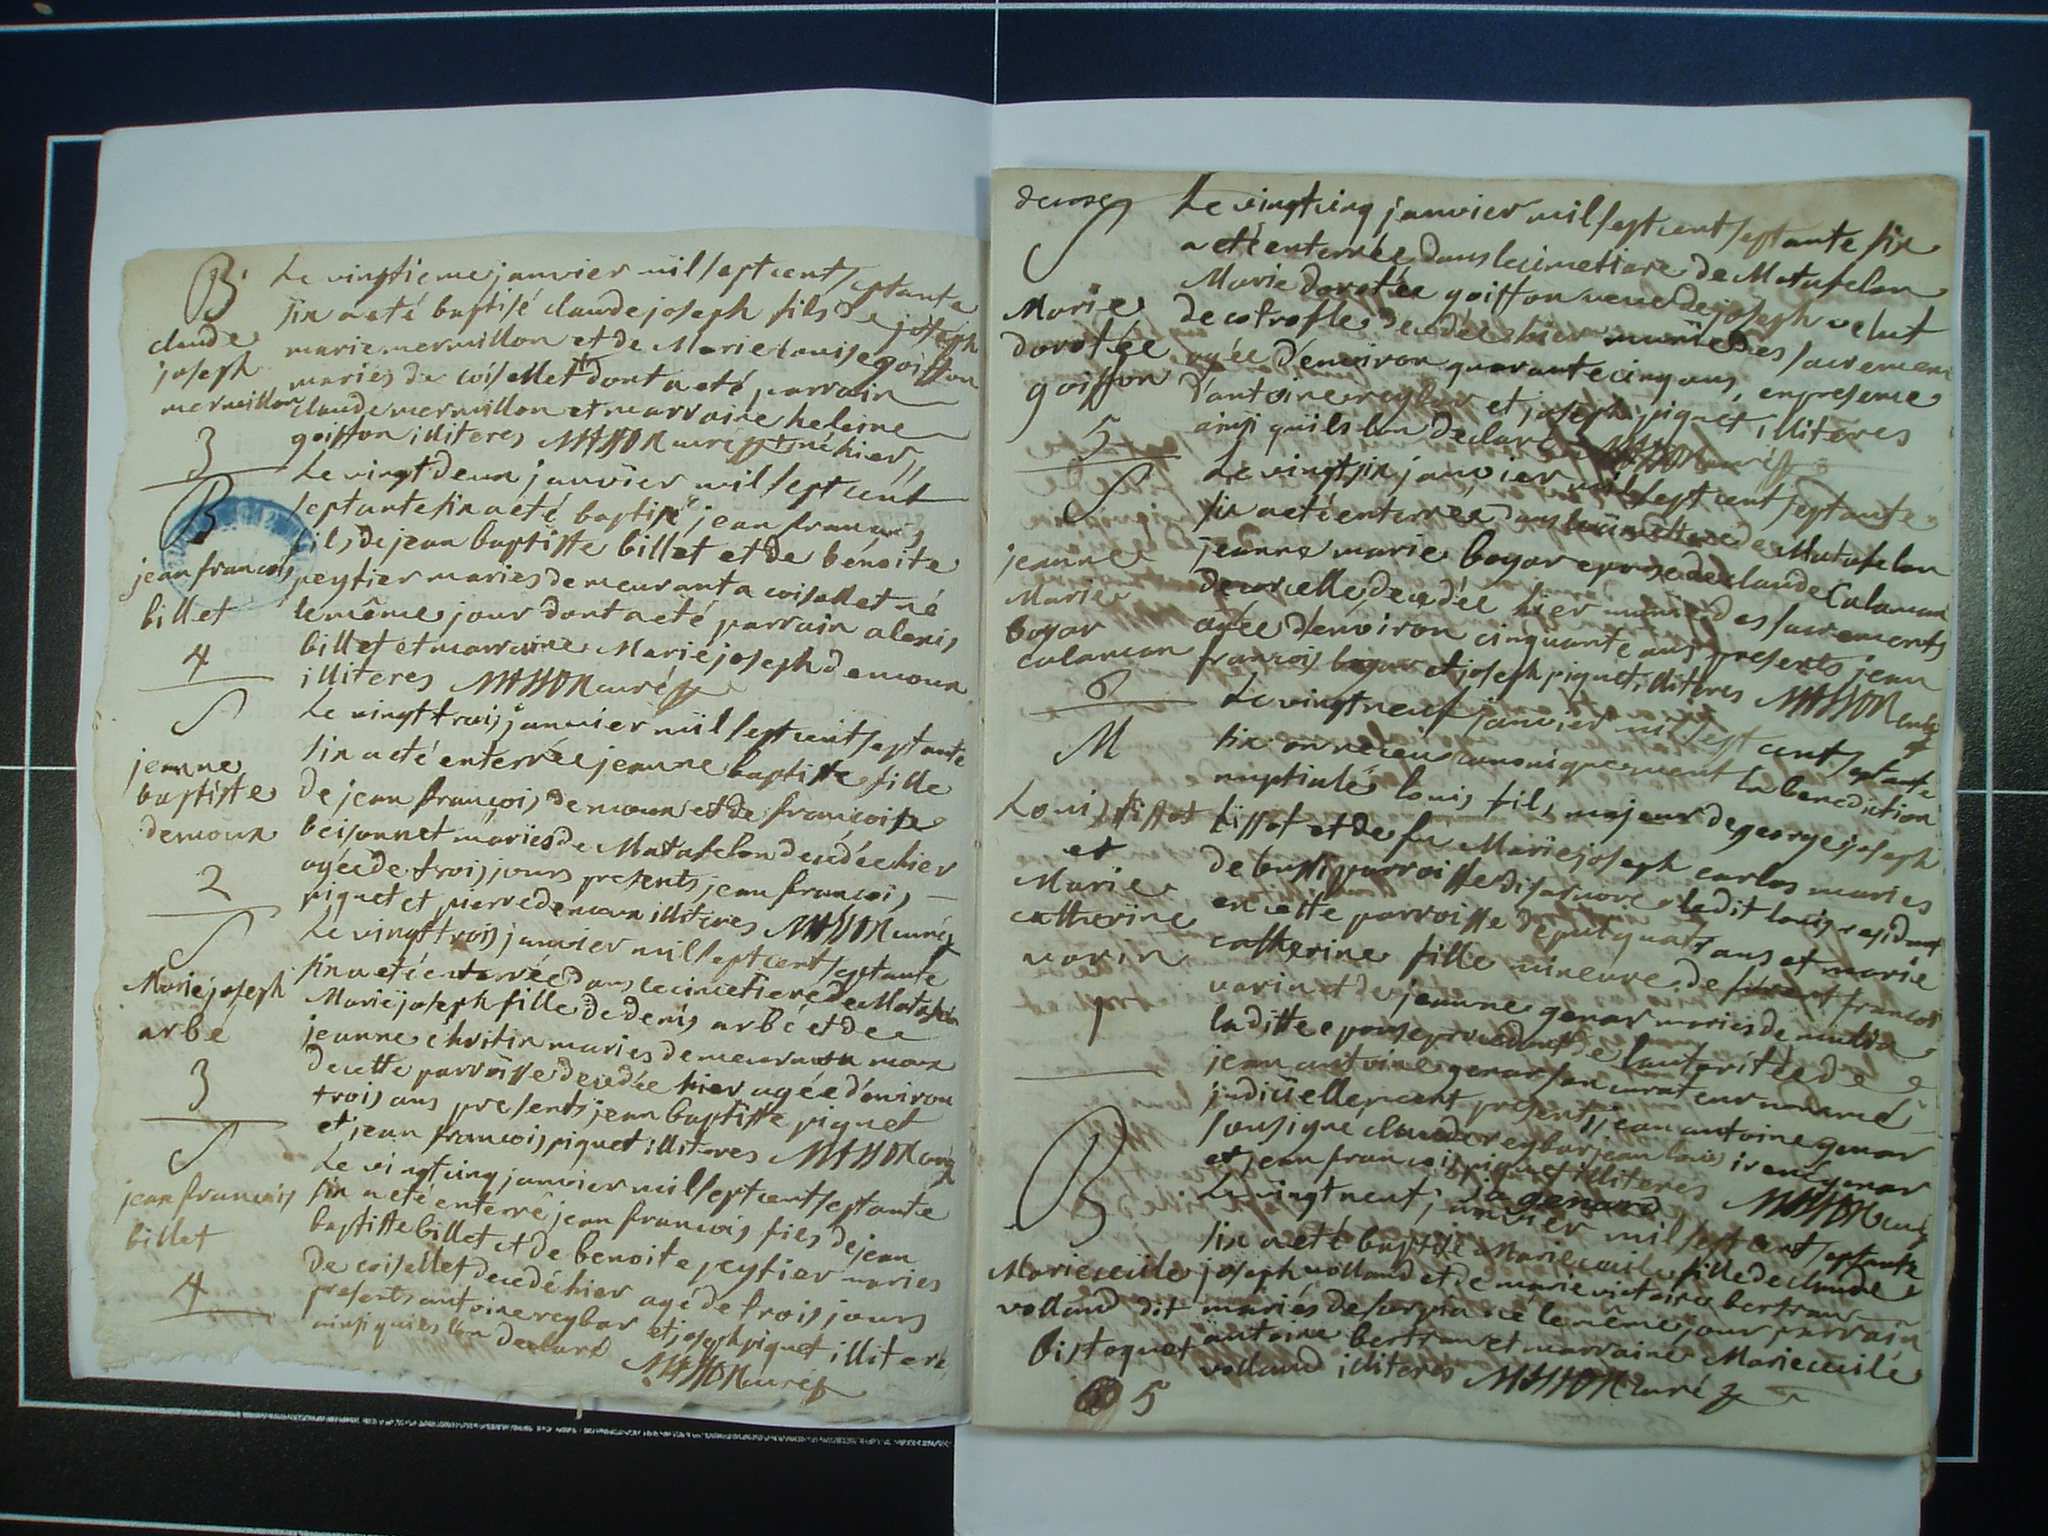 B
Le vingtieme janvier mil sept cent septante
six a eté baptisé claude joseph fils de joseph
claude
marie mermillon et de Marie louise goiffon
joseph
mariés de coisellet dont a eté parrain
mermillon
claude mermillon et marraine heleine
goiffon illiteres MASSON curé et né hier
3
Le vingt deux janvier mil sept cent
B
septante six a eté baptisé jean francois
fils de jean baptiste billet et de benoite
jean francois
peytier maries demeurant a coisellet né
billet
le même jour dont a eté parrain alexis
billet et marraine Marie joseph demoux
4
illiteres MASSON curé
S
Le vingt trois janvier mil sept cent septante
six a eté enterrée jeanne baptiste fille
jeanne
baptiste
de jean françois demoux et de françoise
demoux
beisonnet mariés de Matafelon decedée hier
agée de trois jours presents jean francois
2
piquet et pierre demoux illiteres MASSON curé
S
Le vingt trois janvier mil sept cent septante
six a eté enterrée dans le cimetiere de Matafelon
Marie joseph
Marie joseph fille de denis arbé et de
arbé
jeanne christin maries demeurant a
de cette parroisse decedée hier agée d'environ
3
trois ans presents jean baptiste piquet
et jean francois piquet illiteres MASSON curé
S
Le vingt cinq janvier mil sept cent septante
jean francois
six a eté enterré jean francois fils de jean
billet
baptiste billet et de benoite peytier maries
de coisellet decedé hier agé de trois jours
4
presents antoine reybar et joseph piquet illiteres
ainsi quils lon declaré
MASSON curé
S
Le vingt cinq janvier mil sept cent septante six
a eté enterrée dans le cimetiere de Matafelon
Marie
Marie dorotée goiffon veuve de joseph velut
dorotée
de decedée hier munie des sacremens
goiffon
agée d'environ quarante cinq ans, en presence
d'antoine reybar et joseph piquet illiteres
5
ainsi quils lon declaré MASSON curé
S
Le vingt six janvier mil sept cent septante
six a eté enterrée dans le cimetiere de Matafelon
jeanne
jeanne marie bogar epouse de claude Calaman
Marie
de corcelle decedée hier munie des sacrements
bogar
agée d'environ cinquante ans presents jean
calaman
francois bogar et joseph piquet illiteres MASSON curé
6
Le vingt neuf janvier mil sept cent septante
M
six on receu canoniquement la benediction
nuptiale louis fils majeur de george joseph
Louis tissot
tissot et de fu Marie joseph carlos maries
et
de parroisse ledit louis residant
Marie
en cette parroisse depuis quatre ans et marie
catherine
catherine fille mineure de francois
varin
varin et de jeanne genar mariés de
1
laditte epouse procedant de lautorité de
jean antoine genar son curateur nommé
judiciellement presents jean antoine genar
sousigné claude reybar jean louis irené genar
et jean francois piquet illiteres MASSON curé
genard
B
Le vingt neuf janvier mil sept cent septante
six a eté baptisé Marie cecile fille de claude
Marie cecile
joseph volland et de marie victoire bertran
volland dit
mariés de né le même jour parrain
bistoquet
antoine bertran et marraine Marie cecile
volland illiteres MASSON curé
5